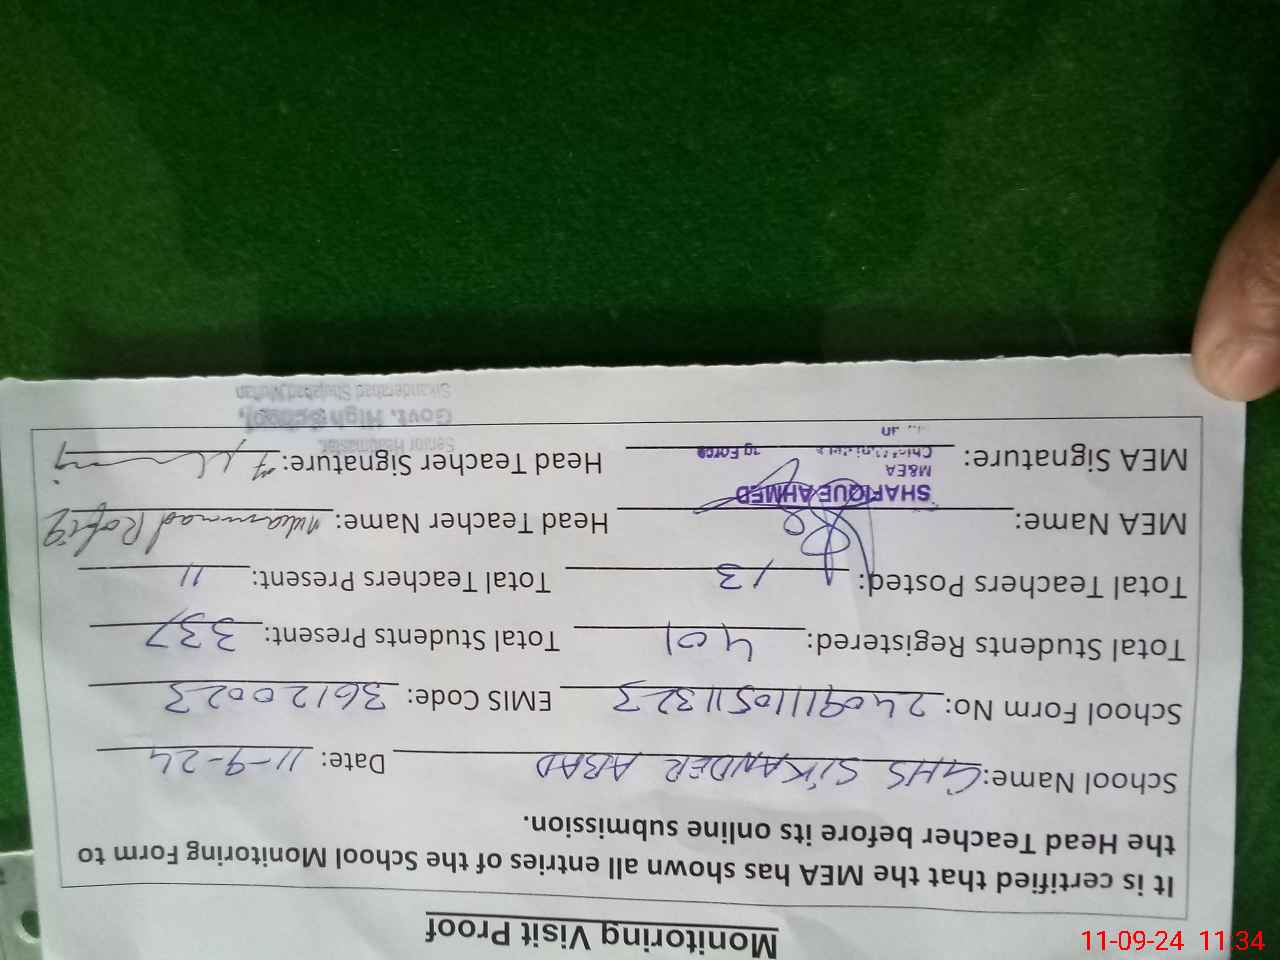 Monitoring Visit Proof
It is certified that the MEA has shown all entries of the School Monitoring Form to
the Head Teacher before its online submission.
School Name: GHS SIKANDER ABAD Date: 11-9-24
School Form No: 24091110511323 EMIS Code: 36120023
Total Students Registered: 401 Total Students Present: 337
Total Teachers Posted: 13 Total Teachers Present: 11
MEA Name: Head Teacher Name: Muhammad Rafiq
SHAFIQUE AHMED
M&EA
MEA Signature: Head Teacher Signature:
Senior Headmaster
Govt. High School,
Sikanderabad Shujabad, Multan
11-09-24 11:34